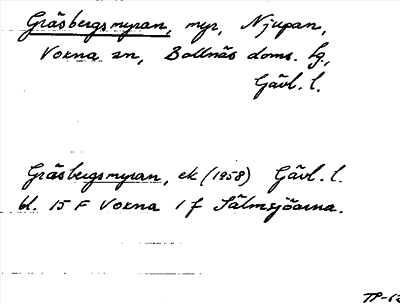 Gräsbergsmyran, myr, Njupan,
Voxna sn, Bollnäs doms. hg,
Gävl. l.
Gräsbergsmyran, ek (1958) Gävl. l.
bl. 15 F Voxna 1 f Sälmsjöarna.